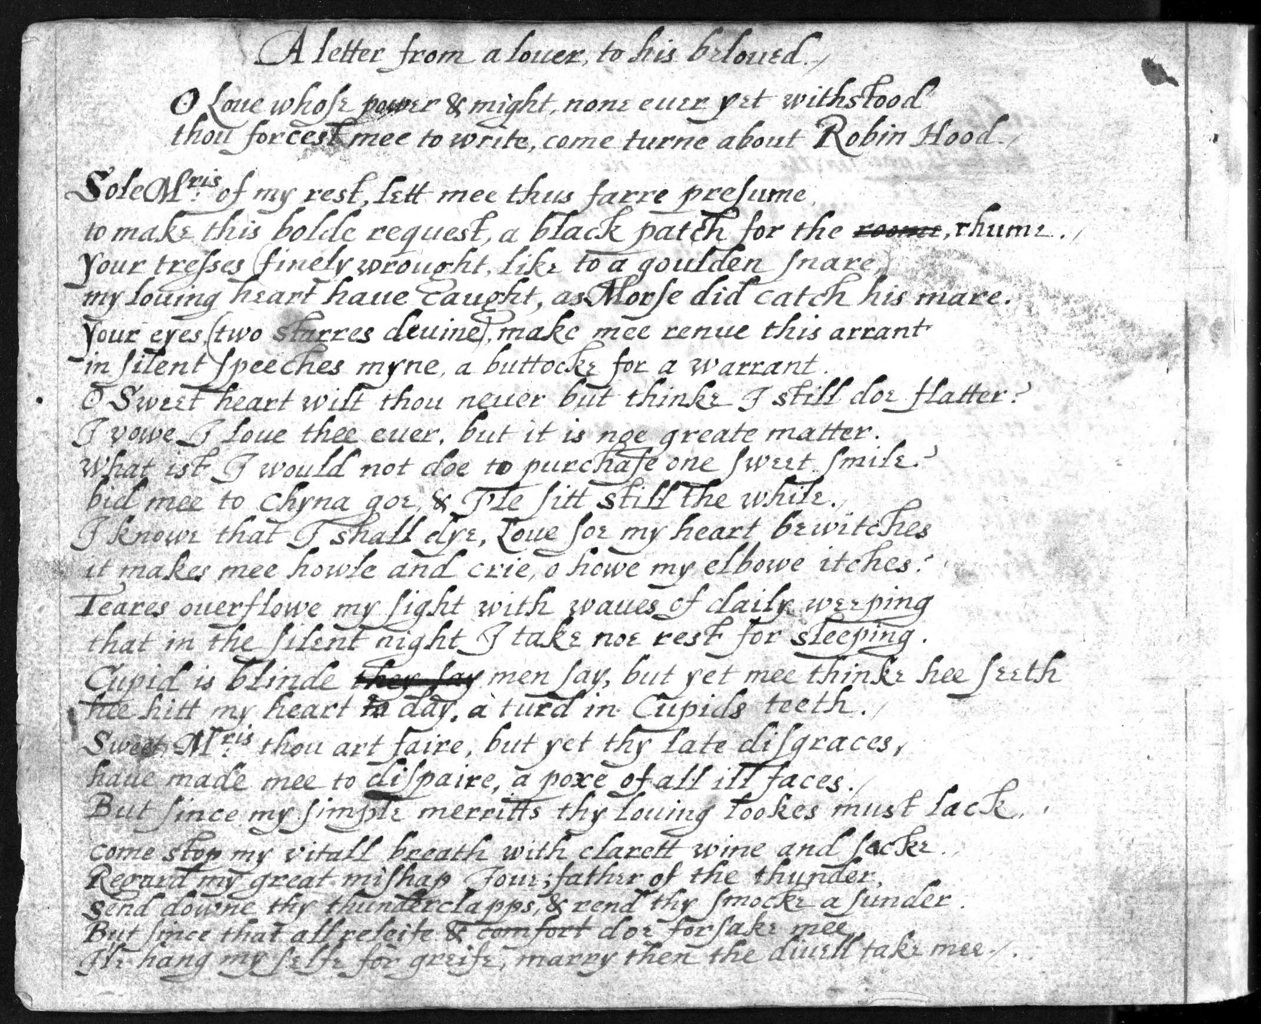 A letter from a louer, to his beloued.
O Loue whose power & might, none euer yet withstood
thou forcest mee to write, come turne about Robin Hood.
Sole Mris of my rest, lett mee thus farre presume
to make this bolde request, a black patch for the roome, rhume.
Your tresses finely wrought, like to a goulden snare,
my louing heart haue caught, as Morse did catch his mare.
Your eyes (two starres deuine) make mee renue this arrant
in silent speeches myne, a buttocke for a warrant.
O Sweet heart wilt thou neuer but thinke I still doe flatter?
I vowe I loue thee euer, but it is noe greate matter.
What ist I would not doe to purchase one sweet smile?
bid mee to Chyna goe, & I'le sitt still the while.
I knowe that I shall dye, Loue soe my heart bewitches
it makes mee howle and crie, o howe my elbowe itches.
Teares ouerflowe my sight with waues of daily weeping
that in the silent night I take noe rest for sleeping.
Cupid is blinde they say men say, but yet mee thinke hee seeth
hee hitt my heart to day, a turd in Cupids teeth.
Sweet Mris thou art faire, but yet thy late disgraces,
haue made mee to dispaire, a poxe of all ill faces.
But since my simple merritts thy louing lookes must lack,
come stop my vitall breath with clarett wine and sacke.
Regard my great mishap Joue, father of the thunder,
send downe thy thunderclapps, & rend thy smocke asunder.
But since that all releife & comfort doe forsake mee
Ile hang my selfe for greife, marry then the diuell take mee.